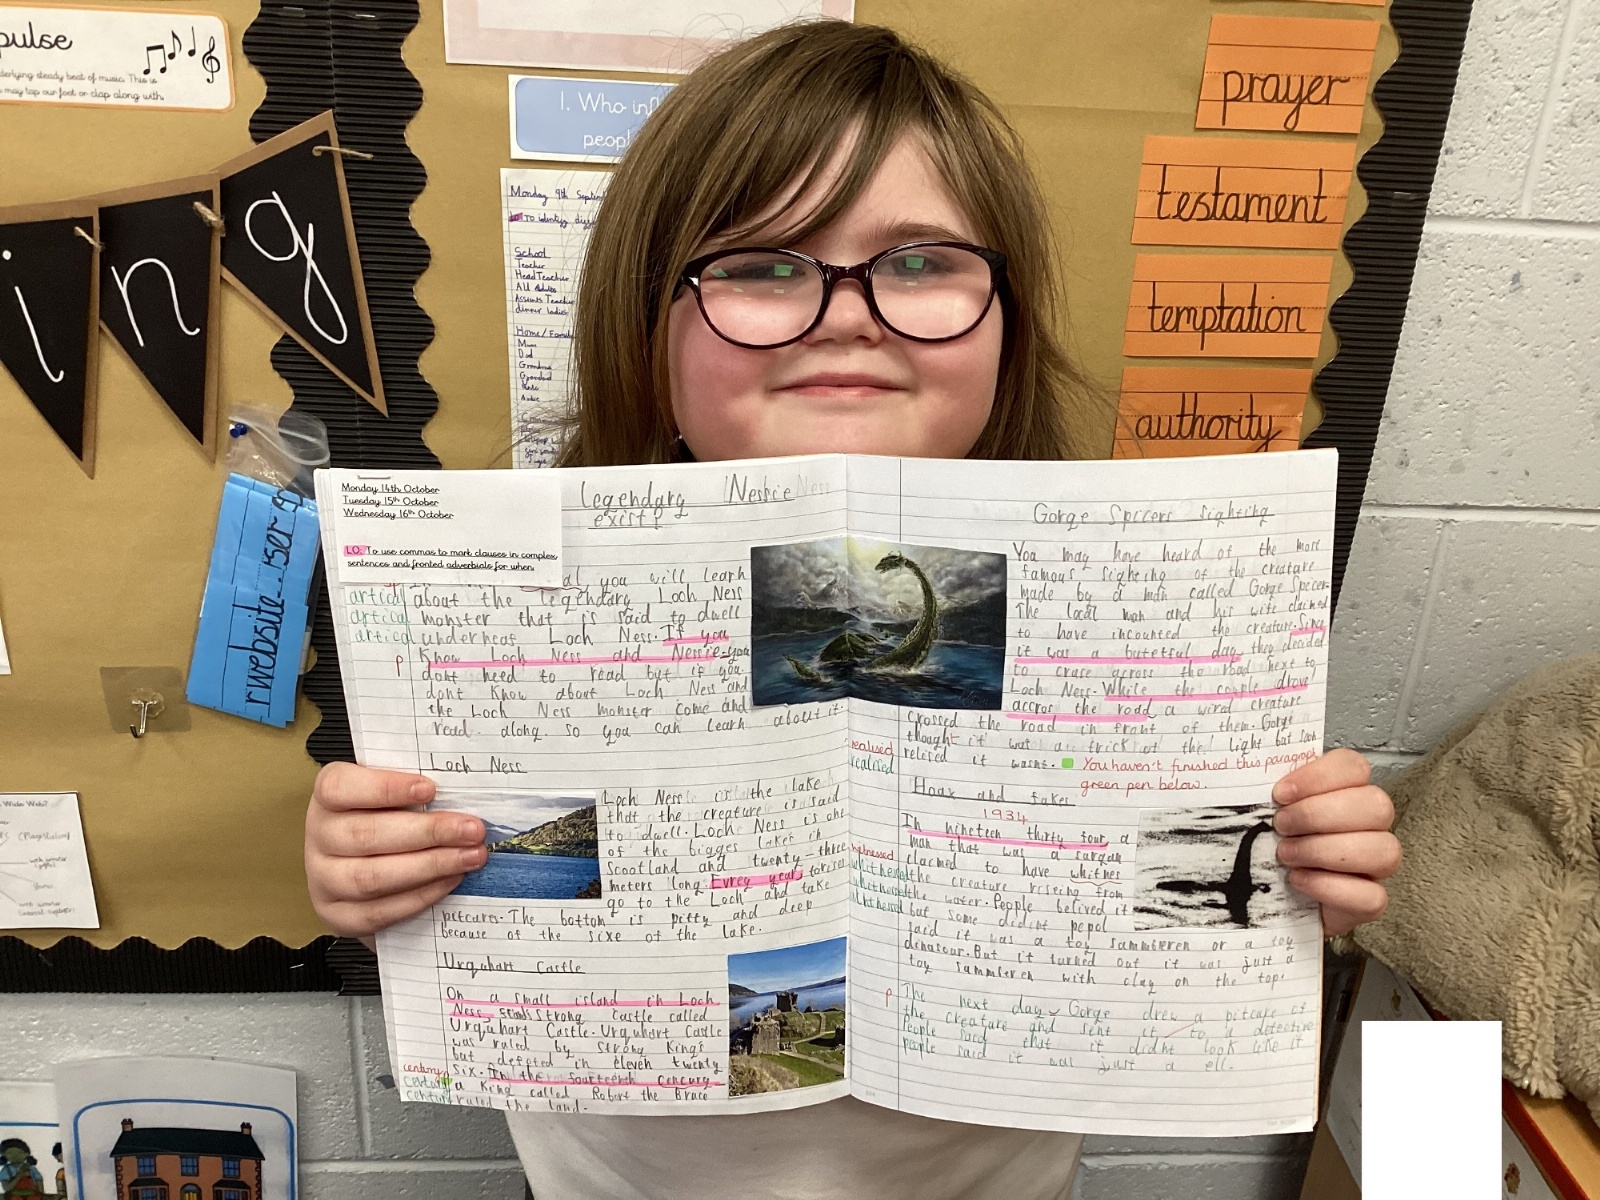 pulse
derlying steady beat of music. This is
may tap our foot or clap along with.
ing
1. Who infl
peopl
Monday 9th Septem
To identify
School
Teacher
Head Teacher
All Adults
dinner ladies
Home/Family
Mum
Dad
Grandma
Grandad
prayer
testament
temptation
authority
website
Monday 14th October
Tuesday 15th October
Wednesday 16th October
LO: To use commas to mark clauses in complex
sentences and fronted adverbials for when.
Legendary Nessie Ness
exist?
al you will learn
artical about the legendary Loch Ness
artical monster that is said to dwell
artical underneat Loch Ness. If you
p Know Loch Ness and Nessie-you
dont need to read but if you
dont Know about Loch Ness and
the Loch Ness monster come and
read along so you can learn about it.
Loch Ness
Loch Ness is the lake
that the creature is said
to dwell. Loch Ness is one
of the bigges lakes in
Scootland and twenty-three
meters long. Evrey year, torises
go to the Loch and take
pitcures. The bottom is pitty and deep
because of the sixe of the lake.
Urquhart Castle
On a small island in Loch
Ness, stands strong castle called
Urquhart Castle. Urquhart Castle
was ruled by strong King's
but defeted in eleven twenty
six. In the fourteenth cencury
century
century a King called Robert the Bruce
century ruled the land.
Gorge Spicers sighting
You may have heard of the most
famous sighting of the creature
made by a man called Gorge Spicer.
The local man and his wife claimed
to have incounted the creature. Since
it was a buteful day they decided
to cruse across the road next to
Loch Ness. While the couple drove
accros the road a wired creature
crossed the road in front of them. Gorge
thought it was a trick of the light but soon
realised relised it wasnt. You haven't finished this paragraph
realised green pen below.
Hoax and fakes
1934
In nineteen thirty four a
man that was a surgan
witnessed claimed to have whitnes
whitnessed the creature riseing from
whitnessed the water. People belived it
whitnessed but some didint pepol
said it was a toy sammberen or a toy
dinasour. But it turned out it was just a
toy sammleren with clay on the top.
p The next day Gorge drew a pitcure of
the creature and sent it to a detective
People said that it didnt look like it
people said it was just a ell.